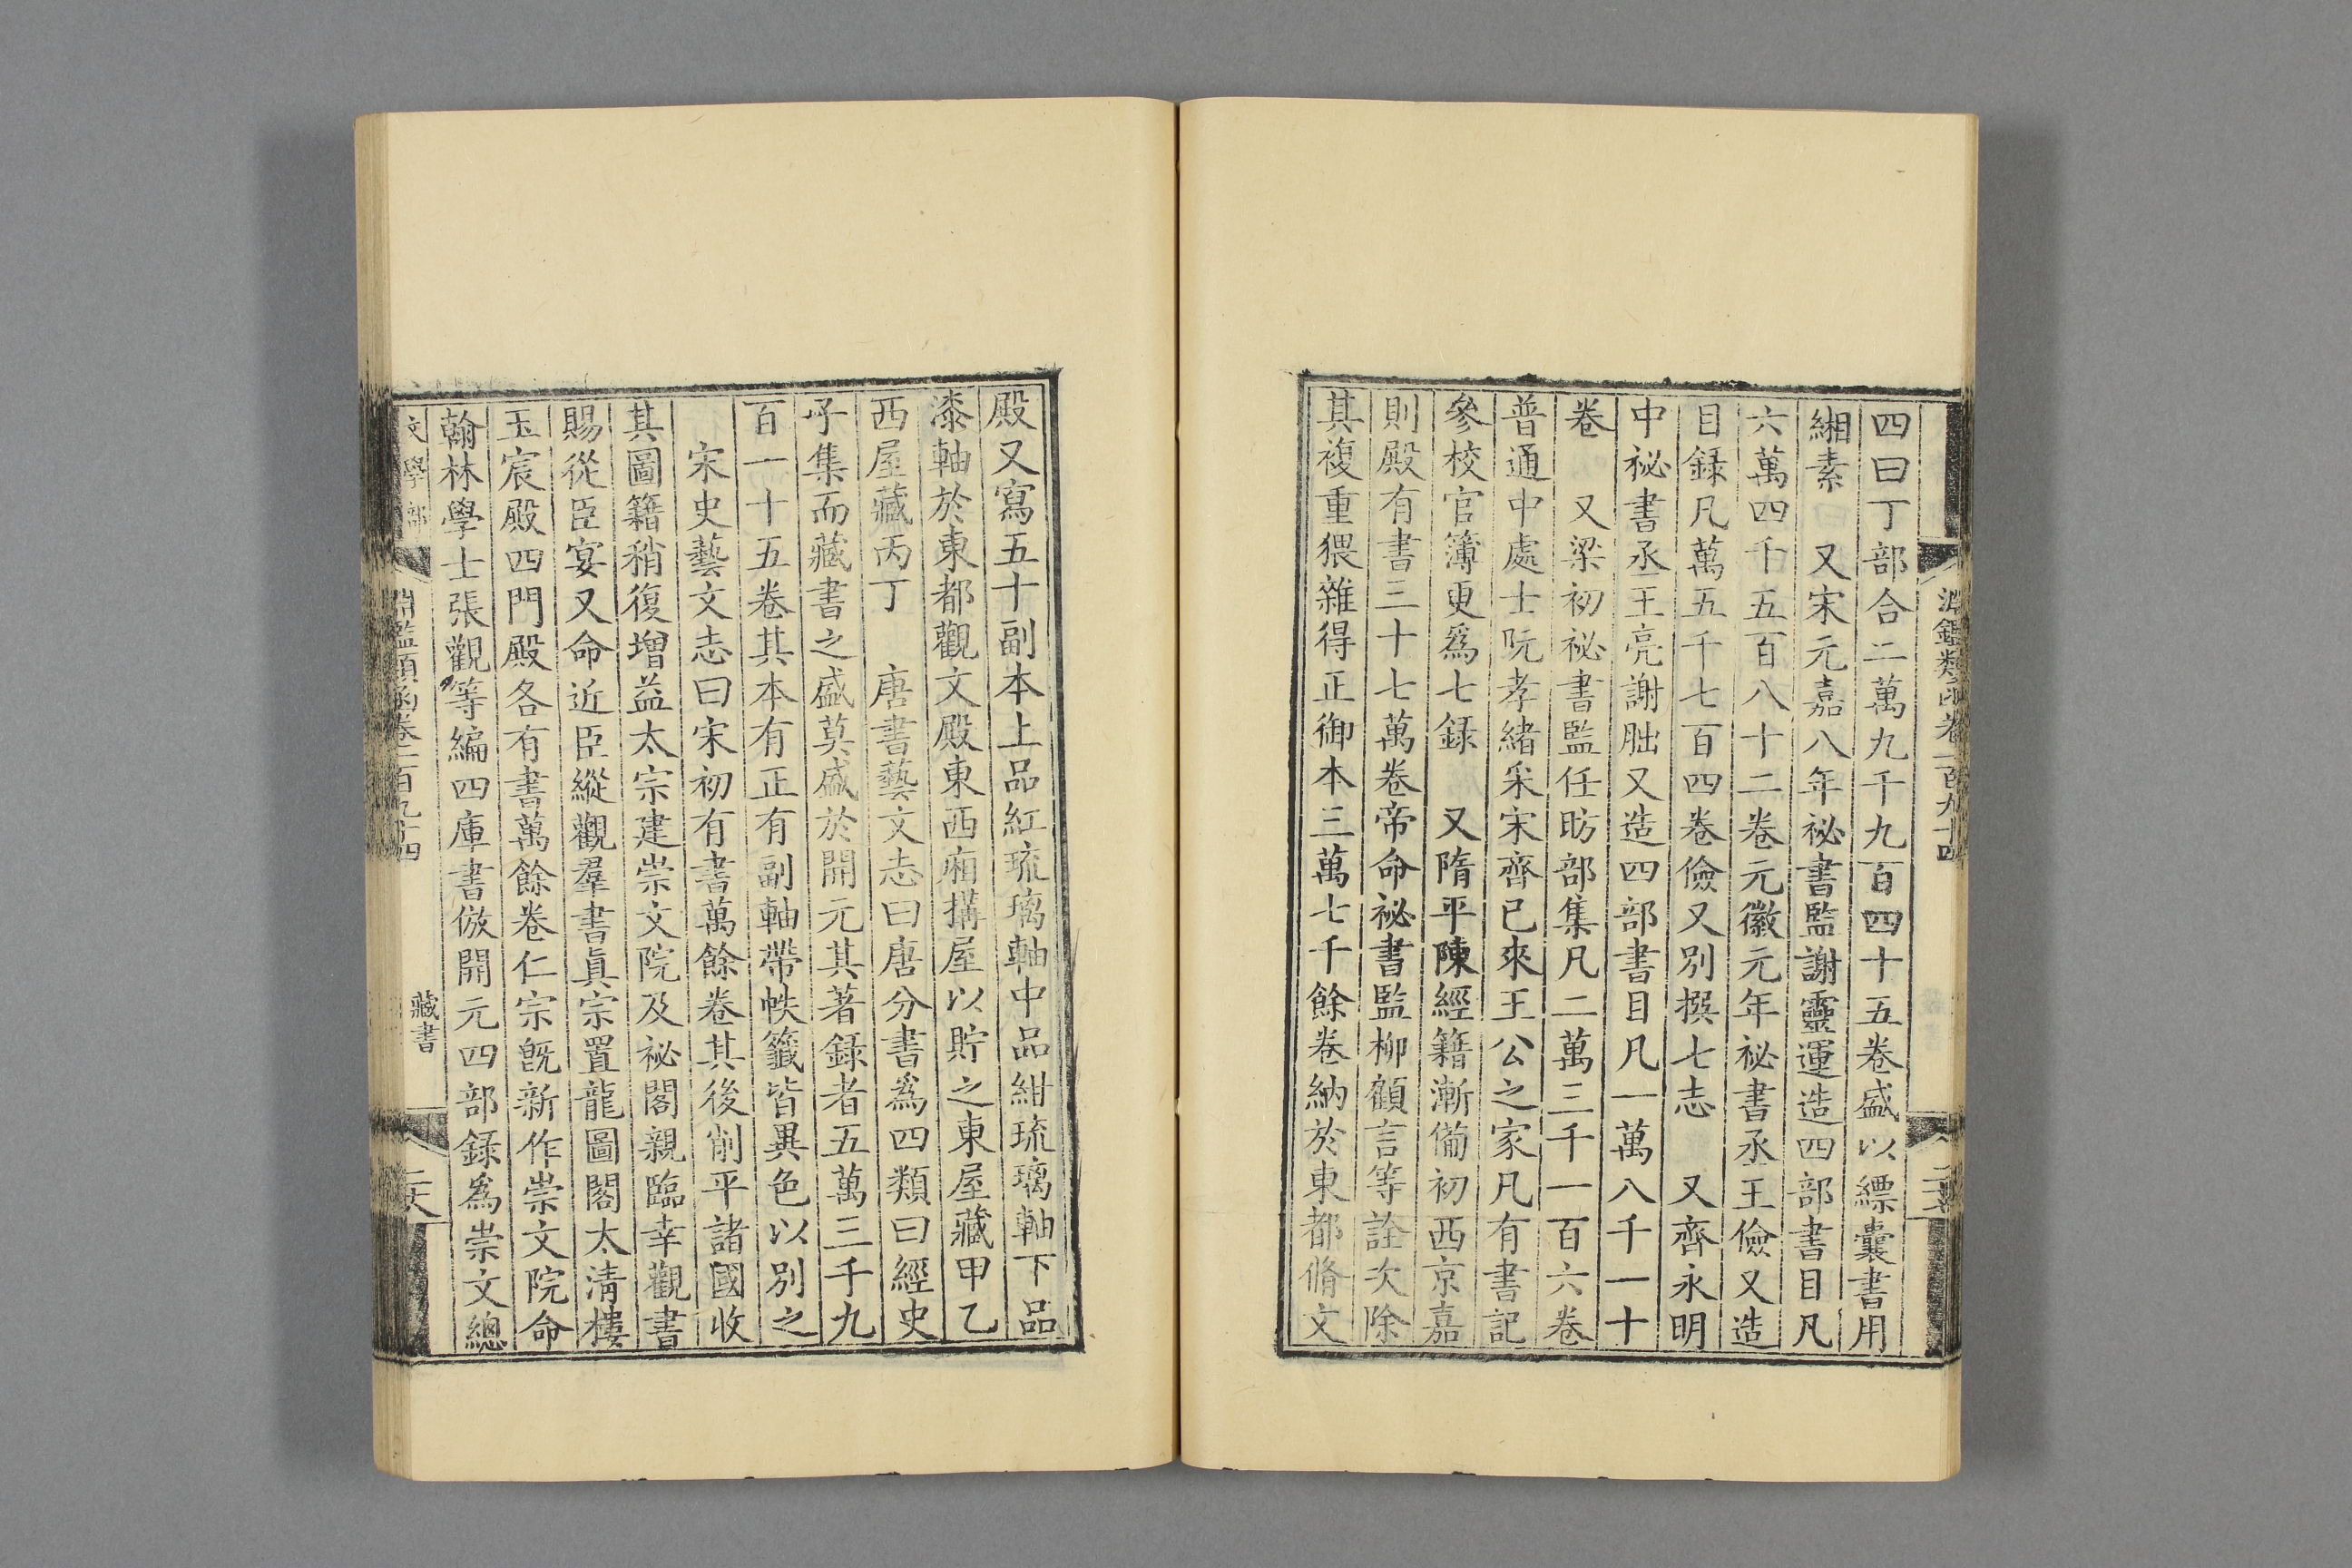 淵鑑類函卷一百九十四
四曰丁部合二萬九千九百四十五卷盛以縹囊書用
緗素 又宋元嘉八年祕書監謝靈運造四部書目凡
六萬四千五百八十二卷元徽元年祕書丞王儉又造
目録凡萬五千七百四卷儉又別撰七志 又齊永明
中祕書丞王亮謝朏又造四部書目凡一萬八千一十
卷 又梁初祕書監任昉部集凡二萬三千一百六卷
普通中處士阮孝緒采宋齊已來王公之家凡有書記
參校官簿更爲七録 又隋平陳經籍漸備初西京嘉
則殿有書三十七萬卷帝命祕書監柳顧言等詮次除
其複重猥雜得正御本三萬七千餘卷納於東都脩文
殿又寫五十副本上品紅琉璃軸中品紺琉璃軸下品
漆軸於東都觀文殿東西廂搆屋以貯之東屋藏甲乙
西屋藏丙丁 唐書藝文志曰唐分書爲四類曰經史
子集而藏書之盛莫盛於開元其著録者五萬三千九
百一十五卷其本有正有副軸帶帙籤皆異色以別之
宋史藝文志曰宋初有書萬餘卷其後削平諸國收
其圖籍稍復增益太宗建崇文院及祕閣親臨幸觀書
賜從臣宴又命近臣縱觀羣書眞宗置龍圖閣太清樓
玉宸殿四門殿各有書萬餘卷仁宗旣新作崇文院命
翰林學士張觀等編四庫書倣開元四部録爲崇文總
文學部 淵鑑類函卷一百九十四 藏書